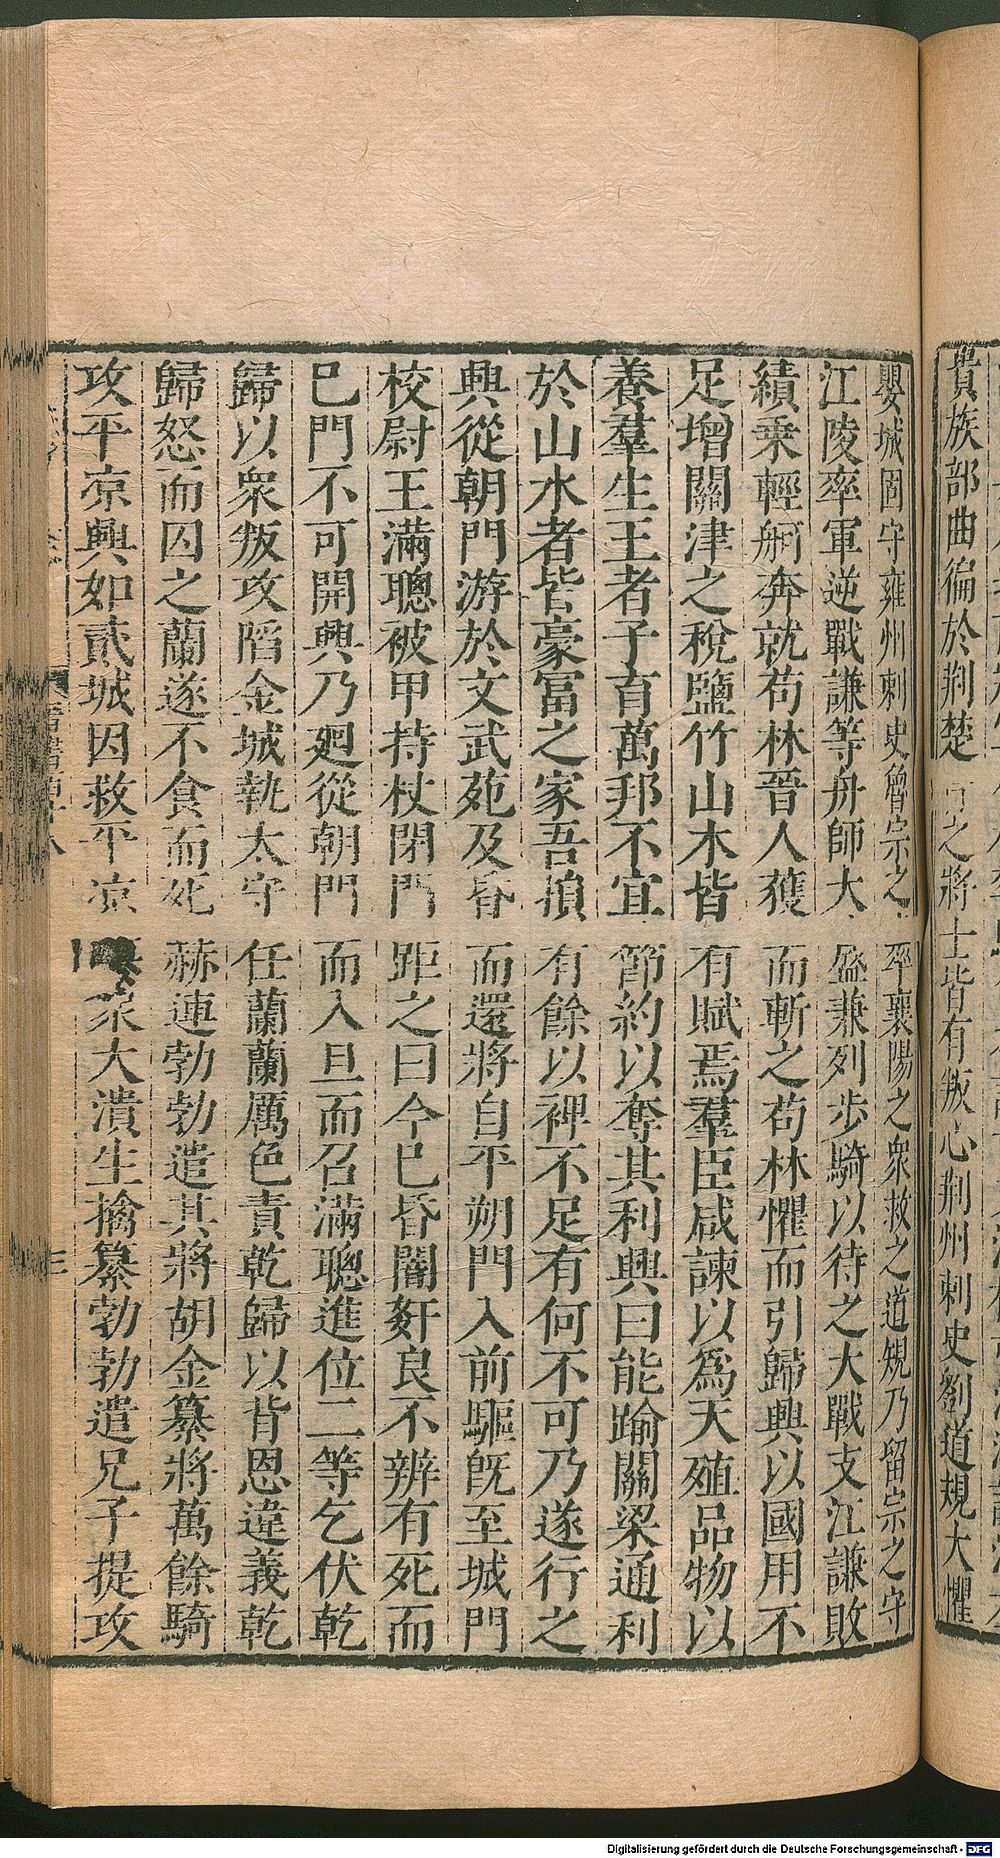 貴族部曲徧於荆楚之將士皆有叛心荆州刺史劉道規大懼
嬰城固守雍州刺史魯宗之率襄陽之衆救之道規乃留宗之守
江陵率軍逆戰謙等舟師大盛兼列步騎以待之大戰支江謙敗
績乗輕舸奔就苟林晉人獲而斬之苟林懼而引歸興以國用不
足增關津之稅鹽竹山木皆有賦焉羣臣咸諫以為天殖品物以
養羣生王者子育萬邦不宜節約以奪其利興曰能踰關梁通利
於山水者皆豪冨之家吾損有餘以裨不足有何不可乃遂行之
興從朝門游於文武苑及昏而還將自平朔門入前驅旣至城門
校尉王滿聰被甲持杖閉門距之曰今巳昏闇奸良不辨有死而
巳門不可開興乃廻從朝門而入旦而召滿聰進位二等乞伏乾
歸以衆叛攻陷金城執太守任蘭蘭厲色責乾歸以背恩違義乾
歸怒而囚之蘭遂不食而死赫連勃勃遣其將胡金纂將萬餘騎
攻平凉興如貳城因救平凉衆大潰生擒纂勃勃遣兄子提攻
Digitalisierung gefördert durch die Deutsche Forschungsgemeinschaft - DFG